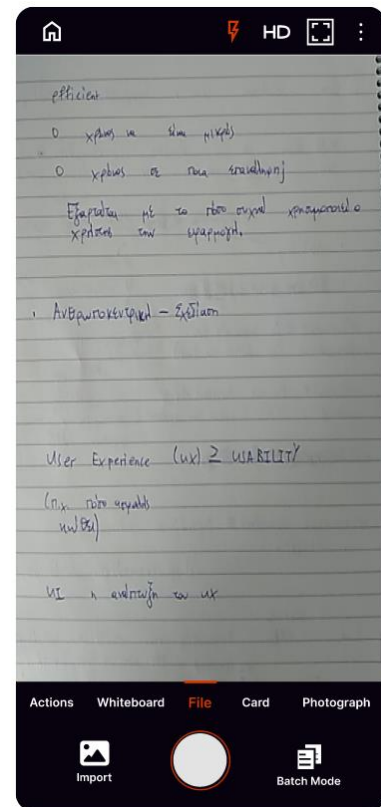 HD
efficient
Ο χρόνος να είναι μικρός
Ο χρόνος σε ποια επανάληψη
Εξαρτάται με το πόσο συχνά χρησιμοποιεί ο
χρήστης την εφαρμογή.
Ανθρωποκεντρική – Σχεδίαση
User Experience (UX) ≥ USABILITY
(π.χ. πόσο
UI η ανάπτυξη του UX
Actions Whiteboard File Card Photograph
Import Batch Mode